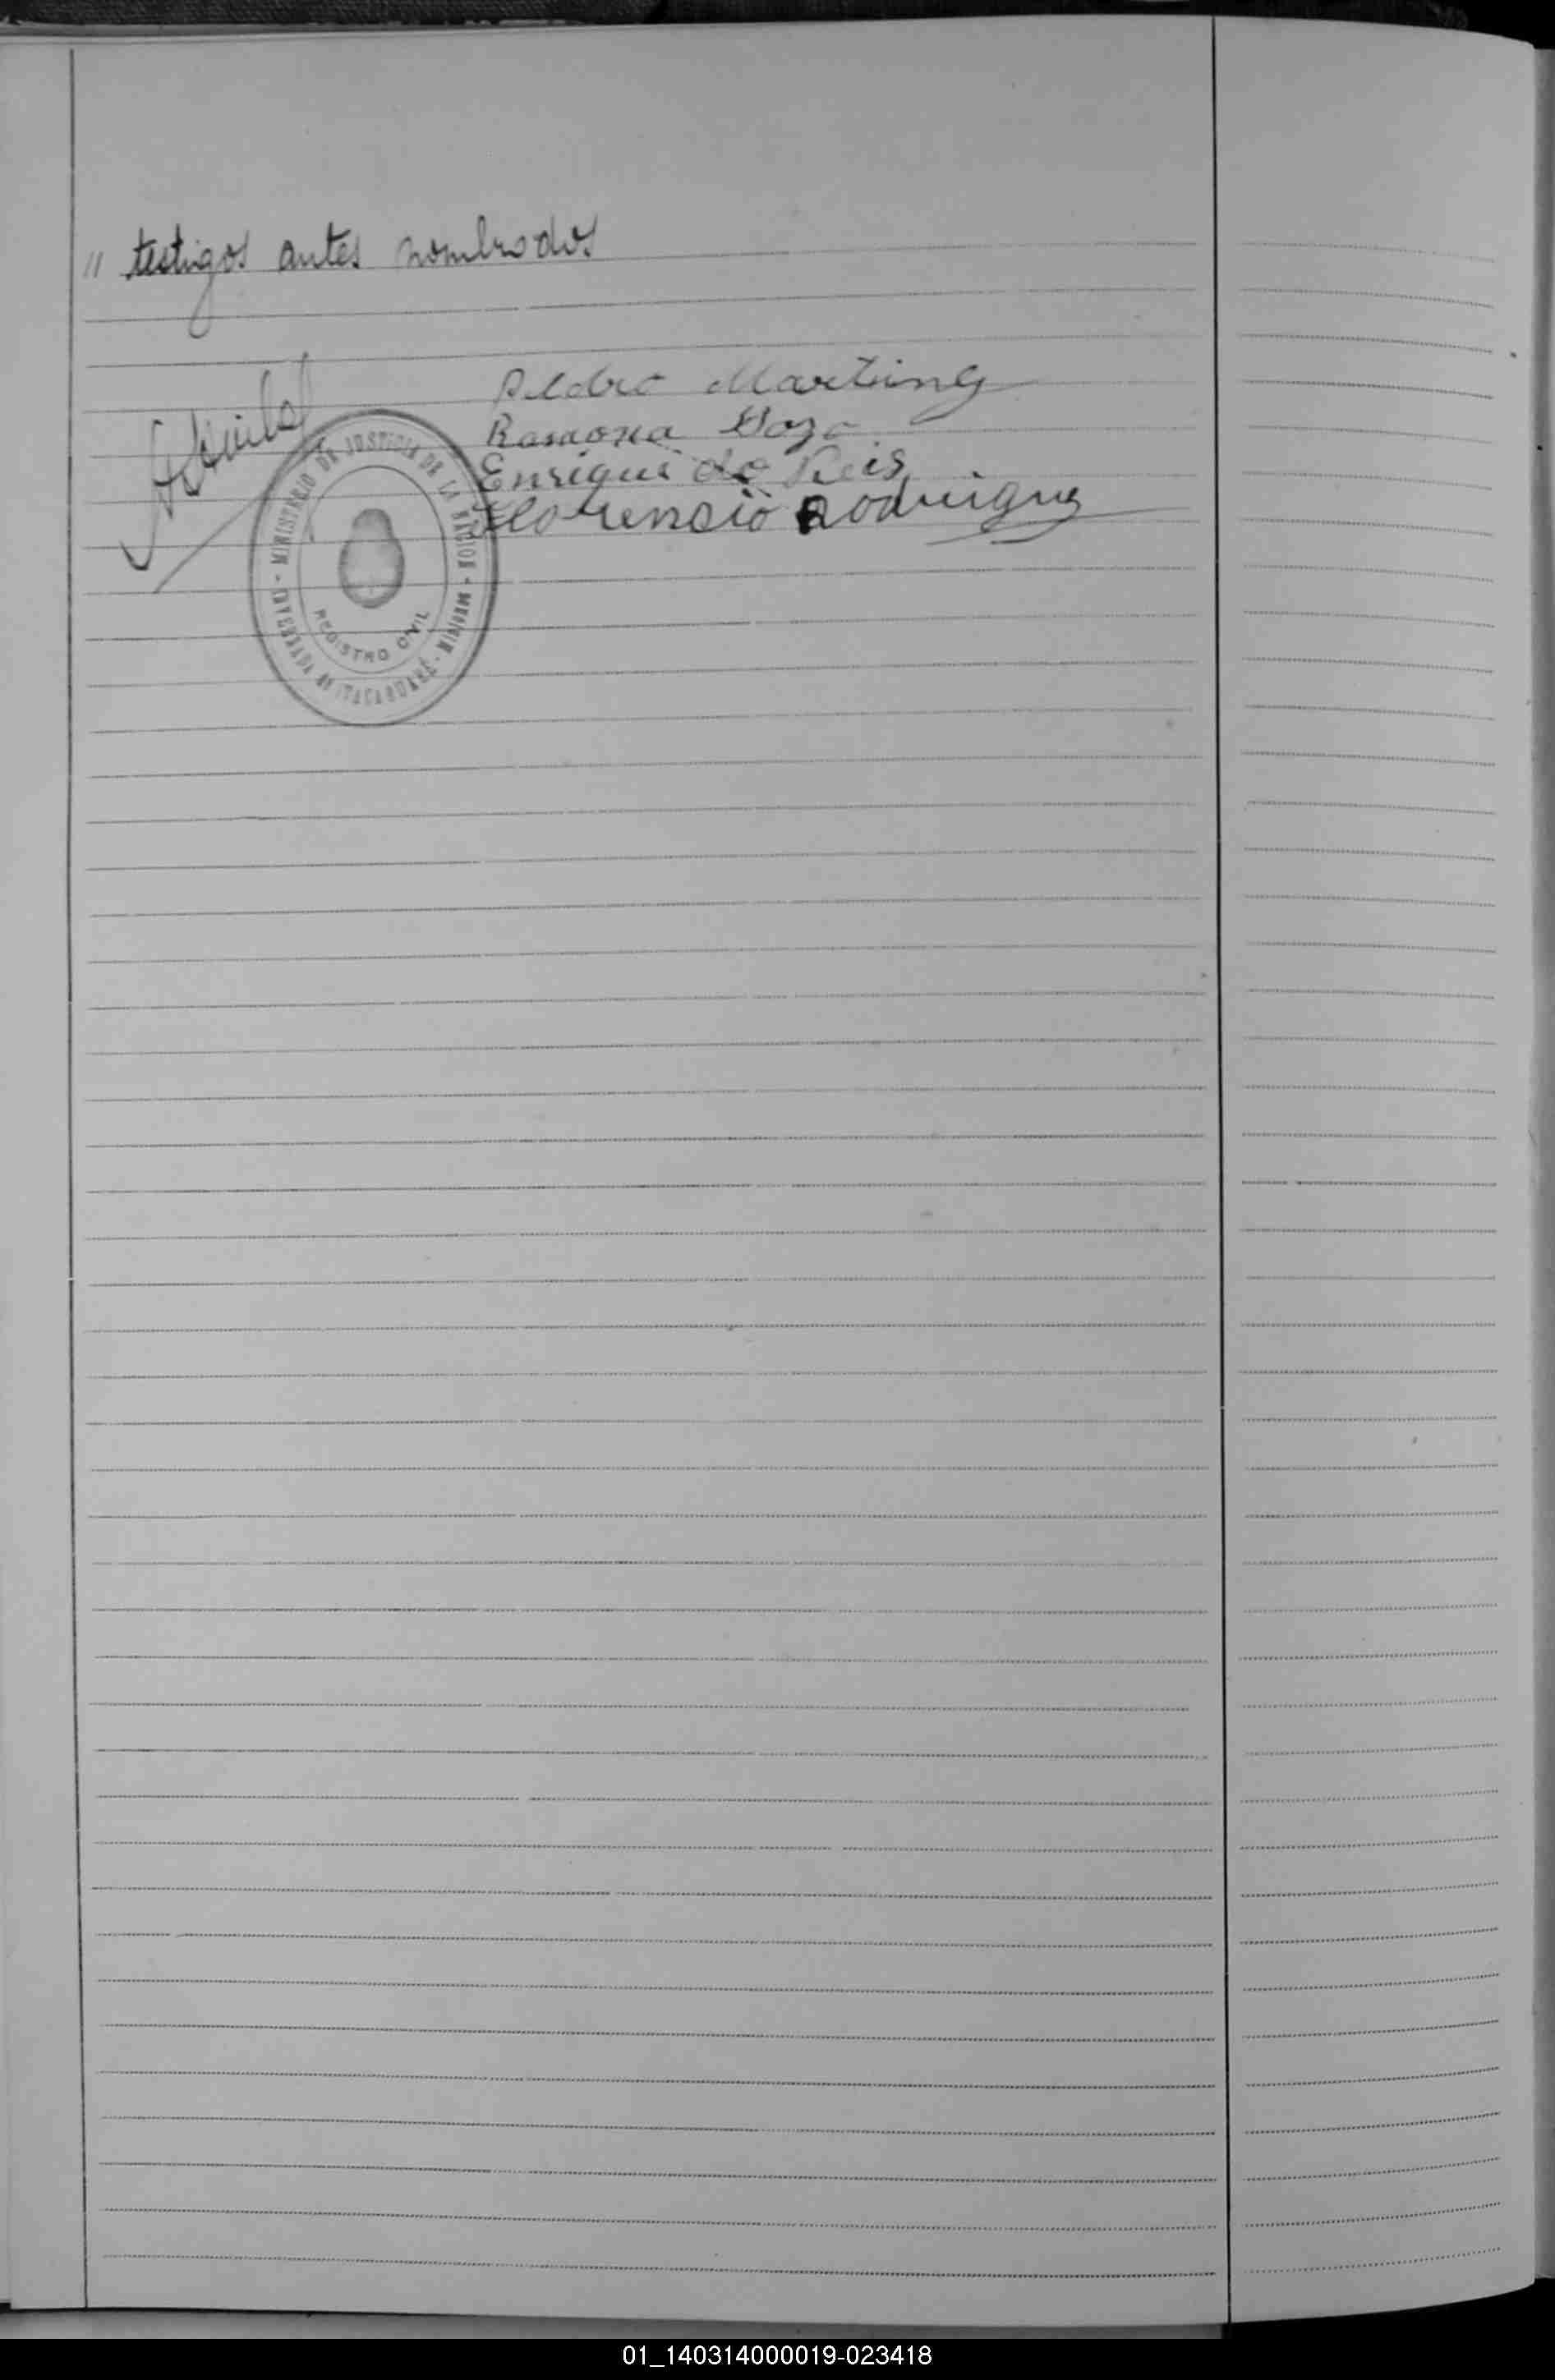 " testigos antes nombrados
Pedro Martinez
Ramona
Enrique do Reis
Florencio Rodriguez
MINISTERIO DE JUSTICIA DE LA NACION - MISIONES
REGISTRO CIVIL
ITACARUARÉ
01_140314000019-023418